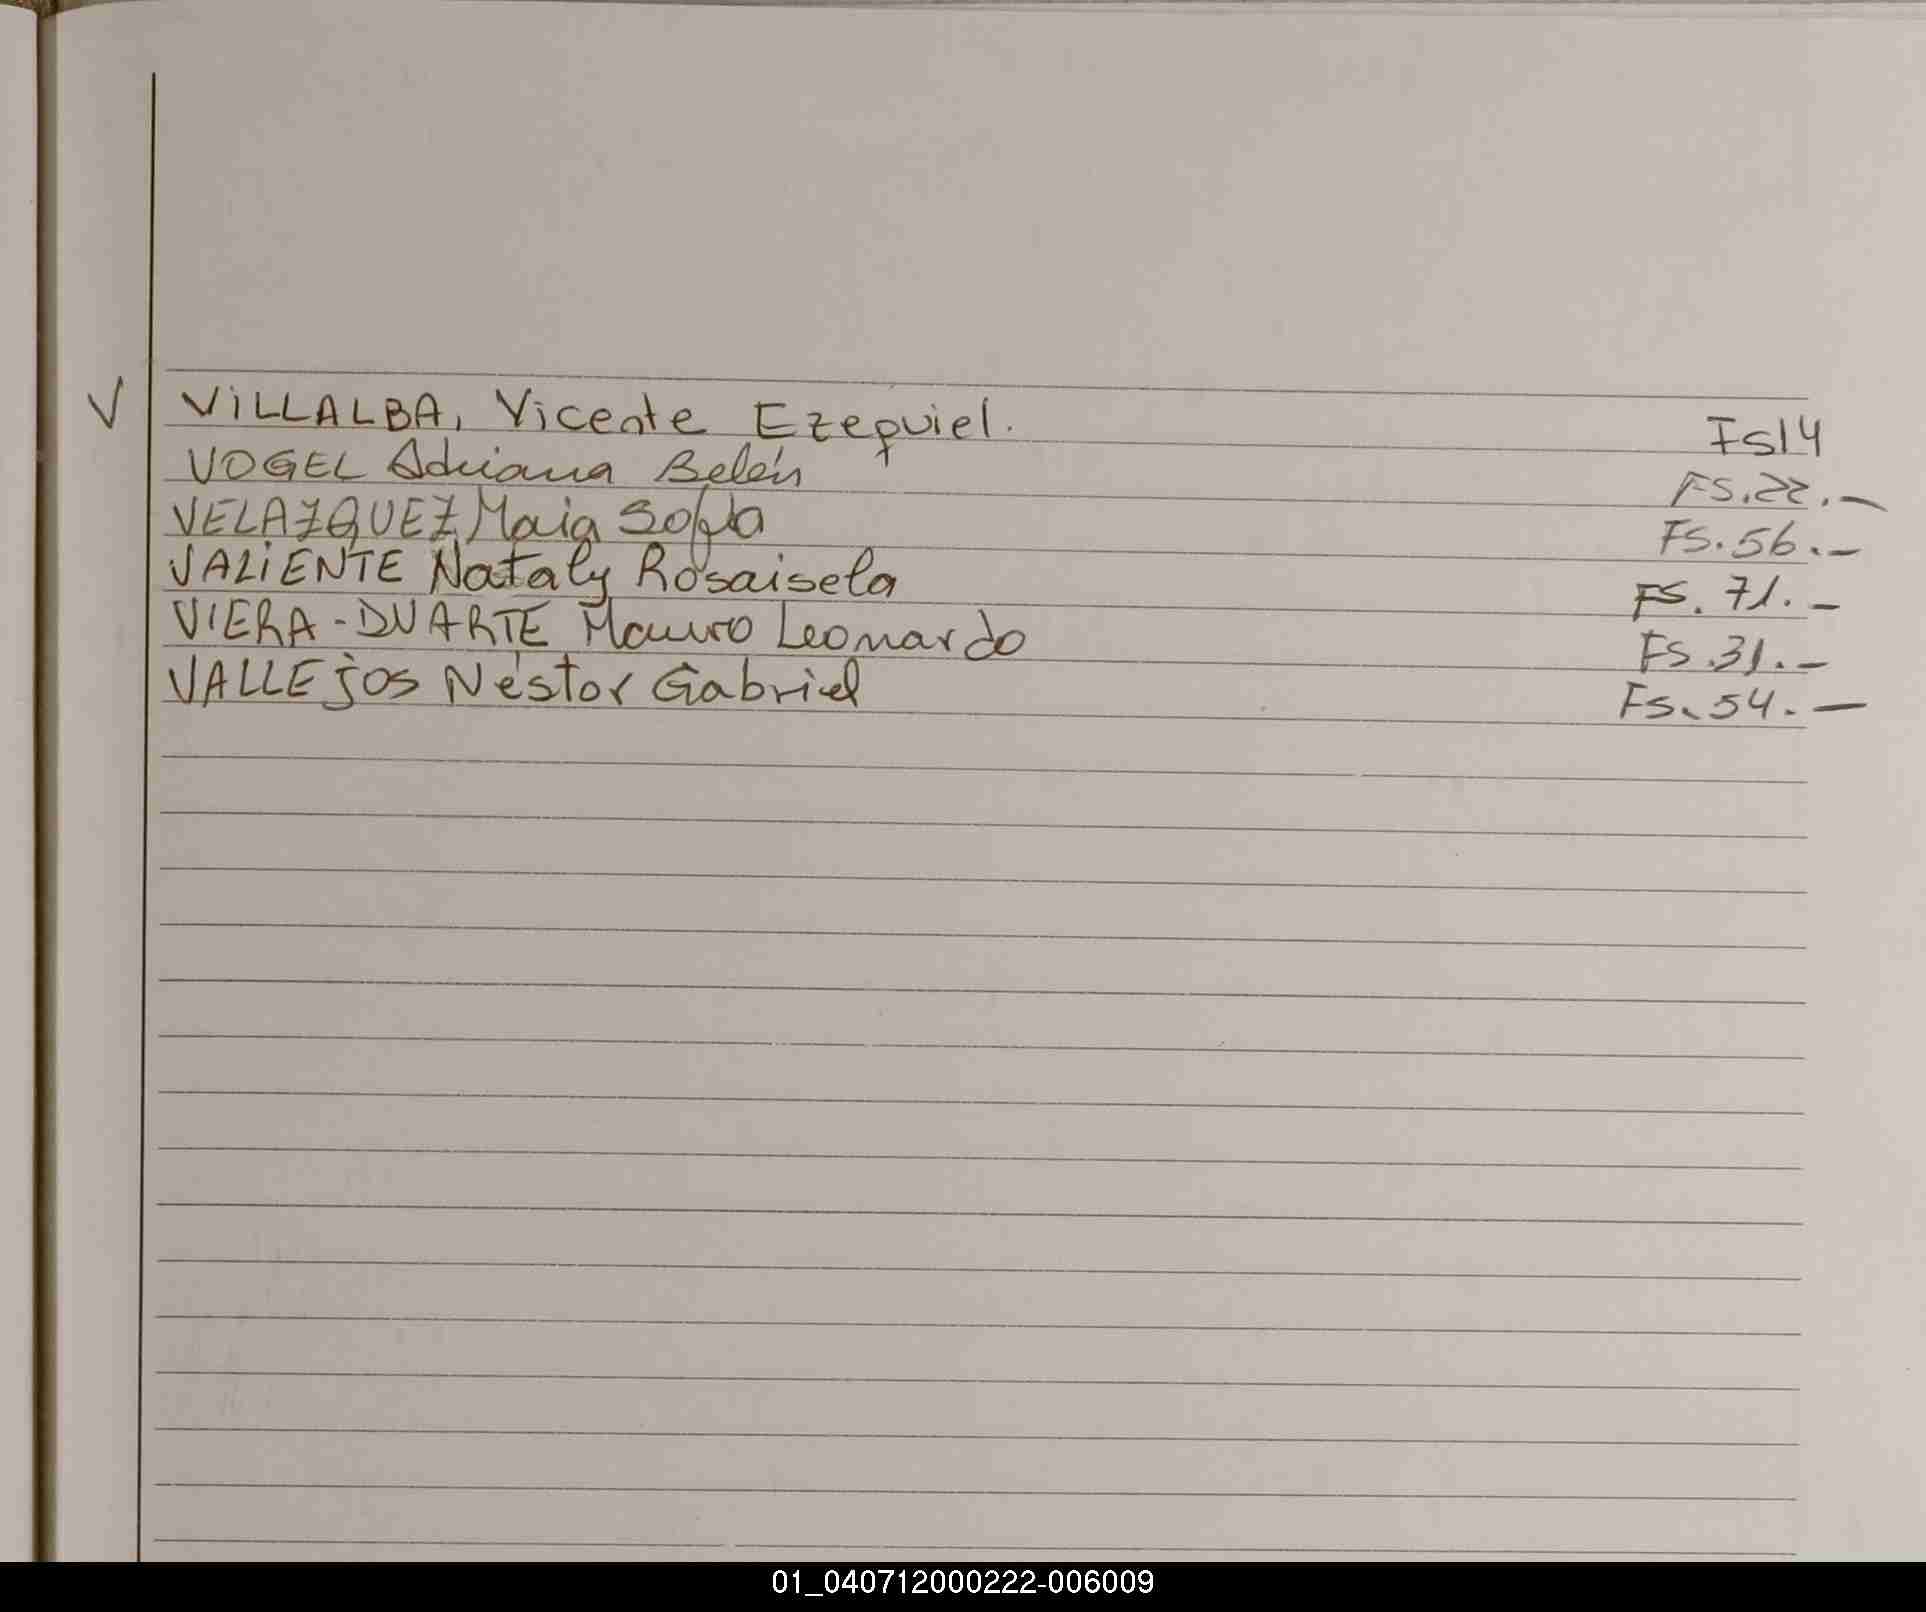 V VILLALBA, Vicente Ezequiel. Fs14
VOGEL Adriana Belén Fs.22.-
VELAZQUEZ Maia Sofía FS.56.-
VALIENTE Nataly Rosaisela FS.71.-
VIERA-DUARTE Mauro Leonardo Fs.31.-
VALLEjos Néstor Gabriel Fs.54.-
01_040712000222-006009